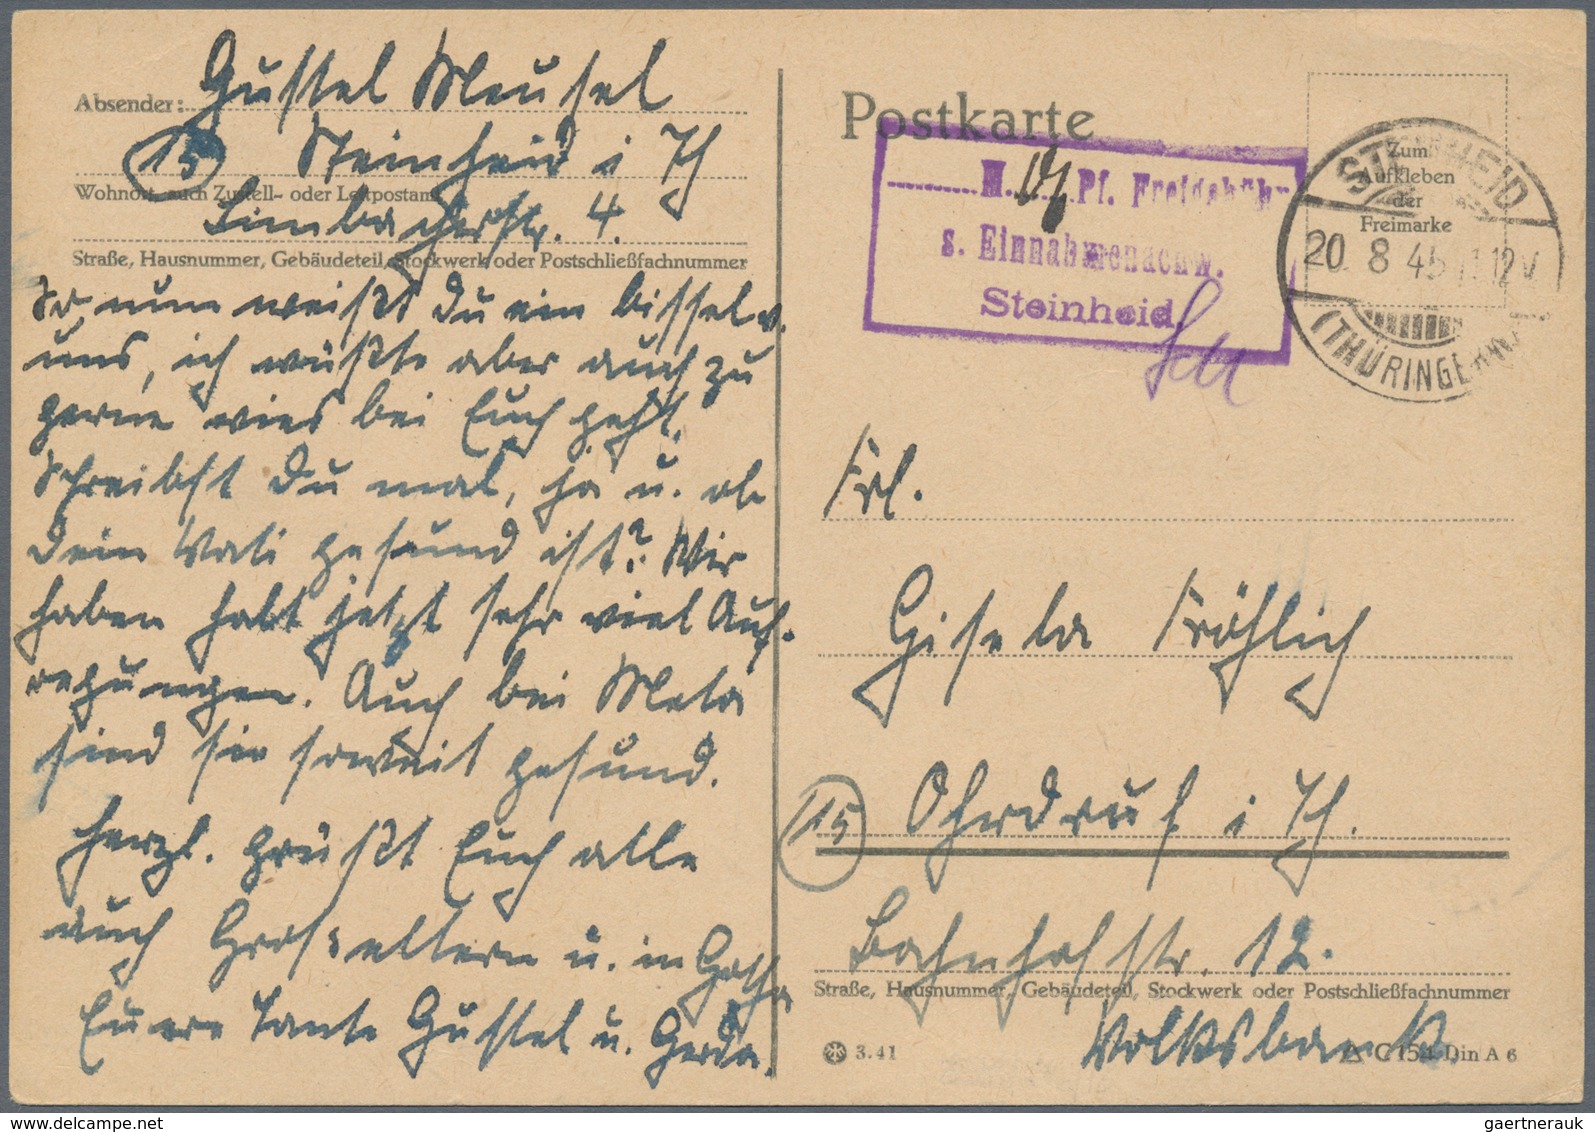 Absender: Gustel Meusel
(15) Steinheid i Th
Wohnort, auch Zustell- oder Leitpostamt
Limbacherstr. 4.
Straße, Hausnummer, Gebäudeteil, Stockwerk oder Postschließfachnummer
So, nun weißt Du ein bissel v.
uns, ich wüßte aber auch zu
gerne wies bei Euch geht.
Schreibst Du mal, ja u. ob
Dein Vati gesund ist? Wir
haben halt jetzt sehr viel Auf-
regungen. Auch bei Meta
sind sie soweit gesund.
Herzl. grüßt Euch alle
auch Grosseltern u. in Gotha
Euere Tante Gustel u. Gerda.
Postkarte
M. Pf. Freigebühr
s. Einnahmenachw.
Steinheid
Zum
Aufkleben
der
Freimarke
STEINHEID
20. 8 45 11-12 V
(THÜRINGERWALD)
Frl.
Gisela Fröhlich
(15) Ohrdruf i Th.
Bahnhofstr. 12.
Straße, Hausnummer, Gebäudeteil, Stockwerk oder Postschließfachnummer
Volksbank.
3.41
C 154 Din A 6
gaertnerauk